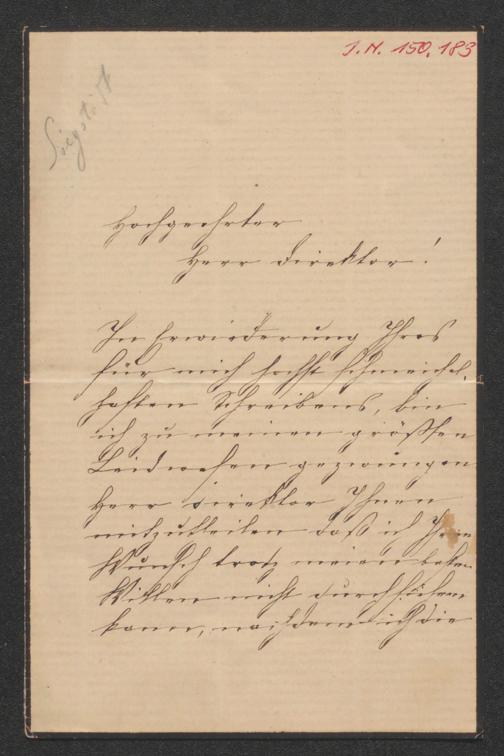 J.N. 150.183
Hochgeehrter
Herr Direktor!
In Erwiederung Ihres
für mich höchst schmeichel-
haften Schreibens, bin
ich zu meinen größten
Leidwesen gezwungen
Herr Direktor Ihnen
mitzutheilen daß ich Ihren
Wunsch trotz meinen besten
Willen nicht durchführen
kann, nachdem ich die